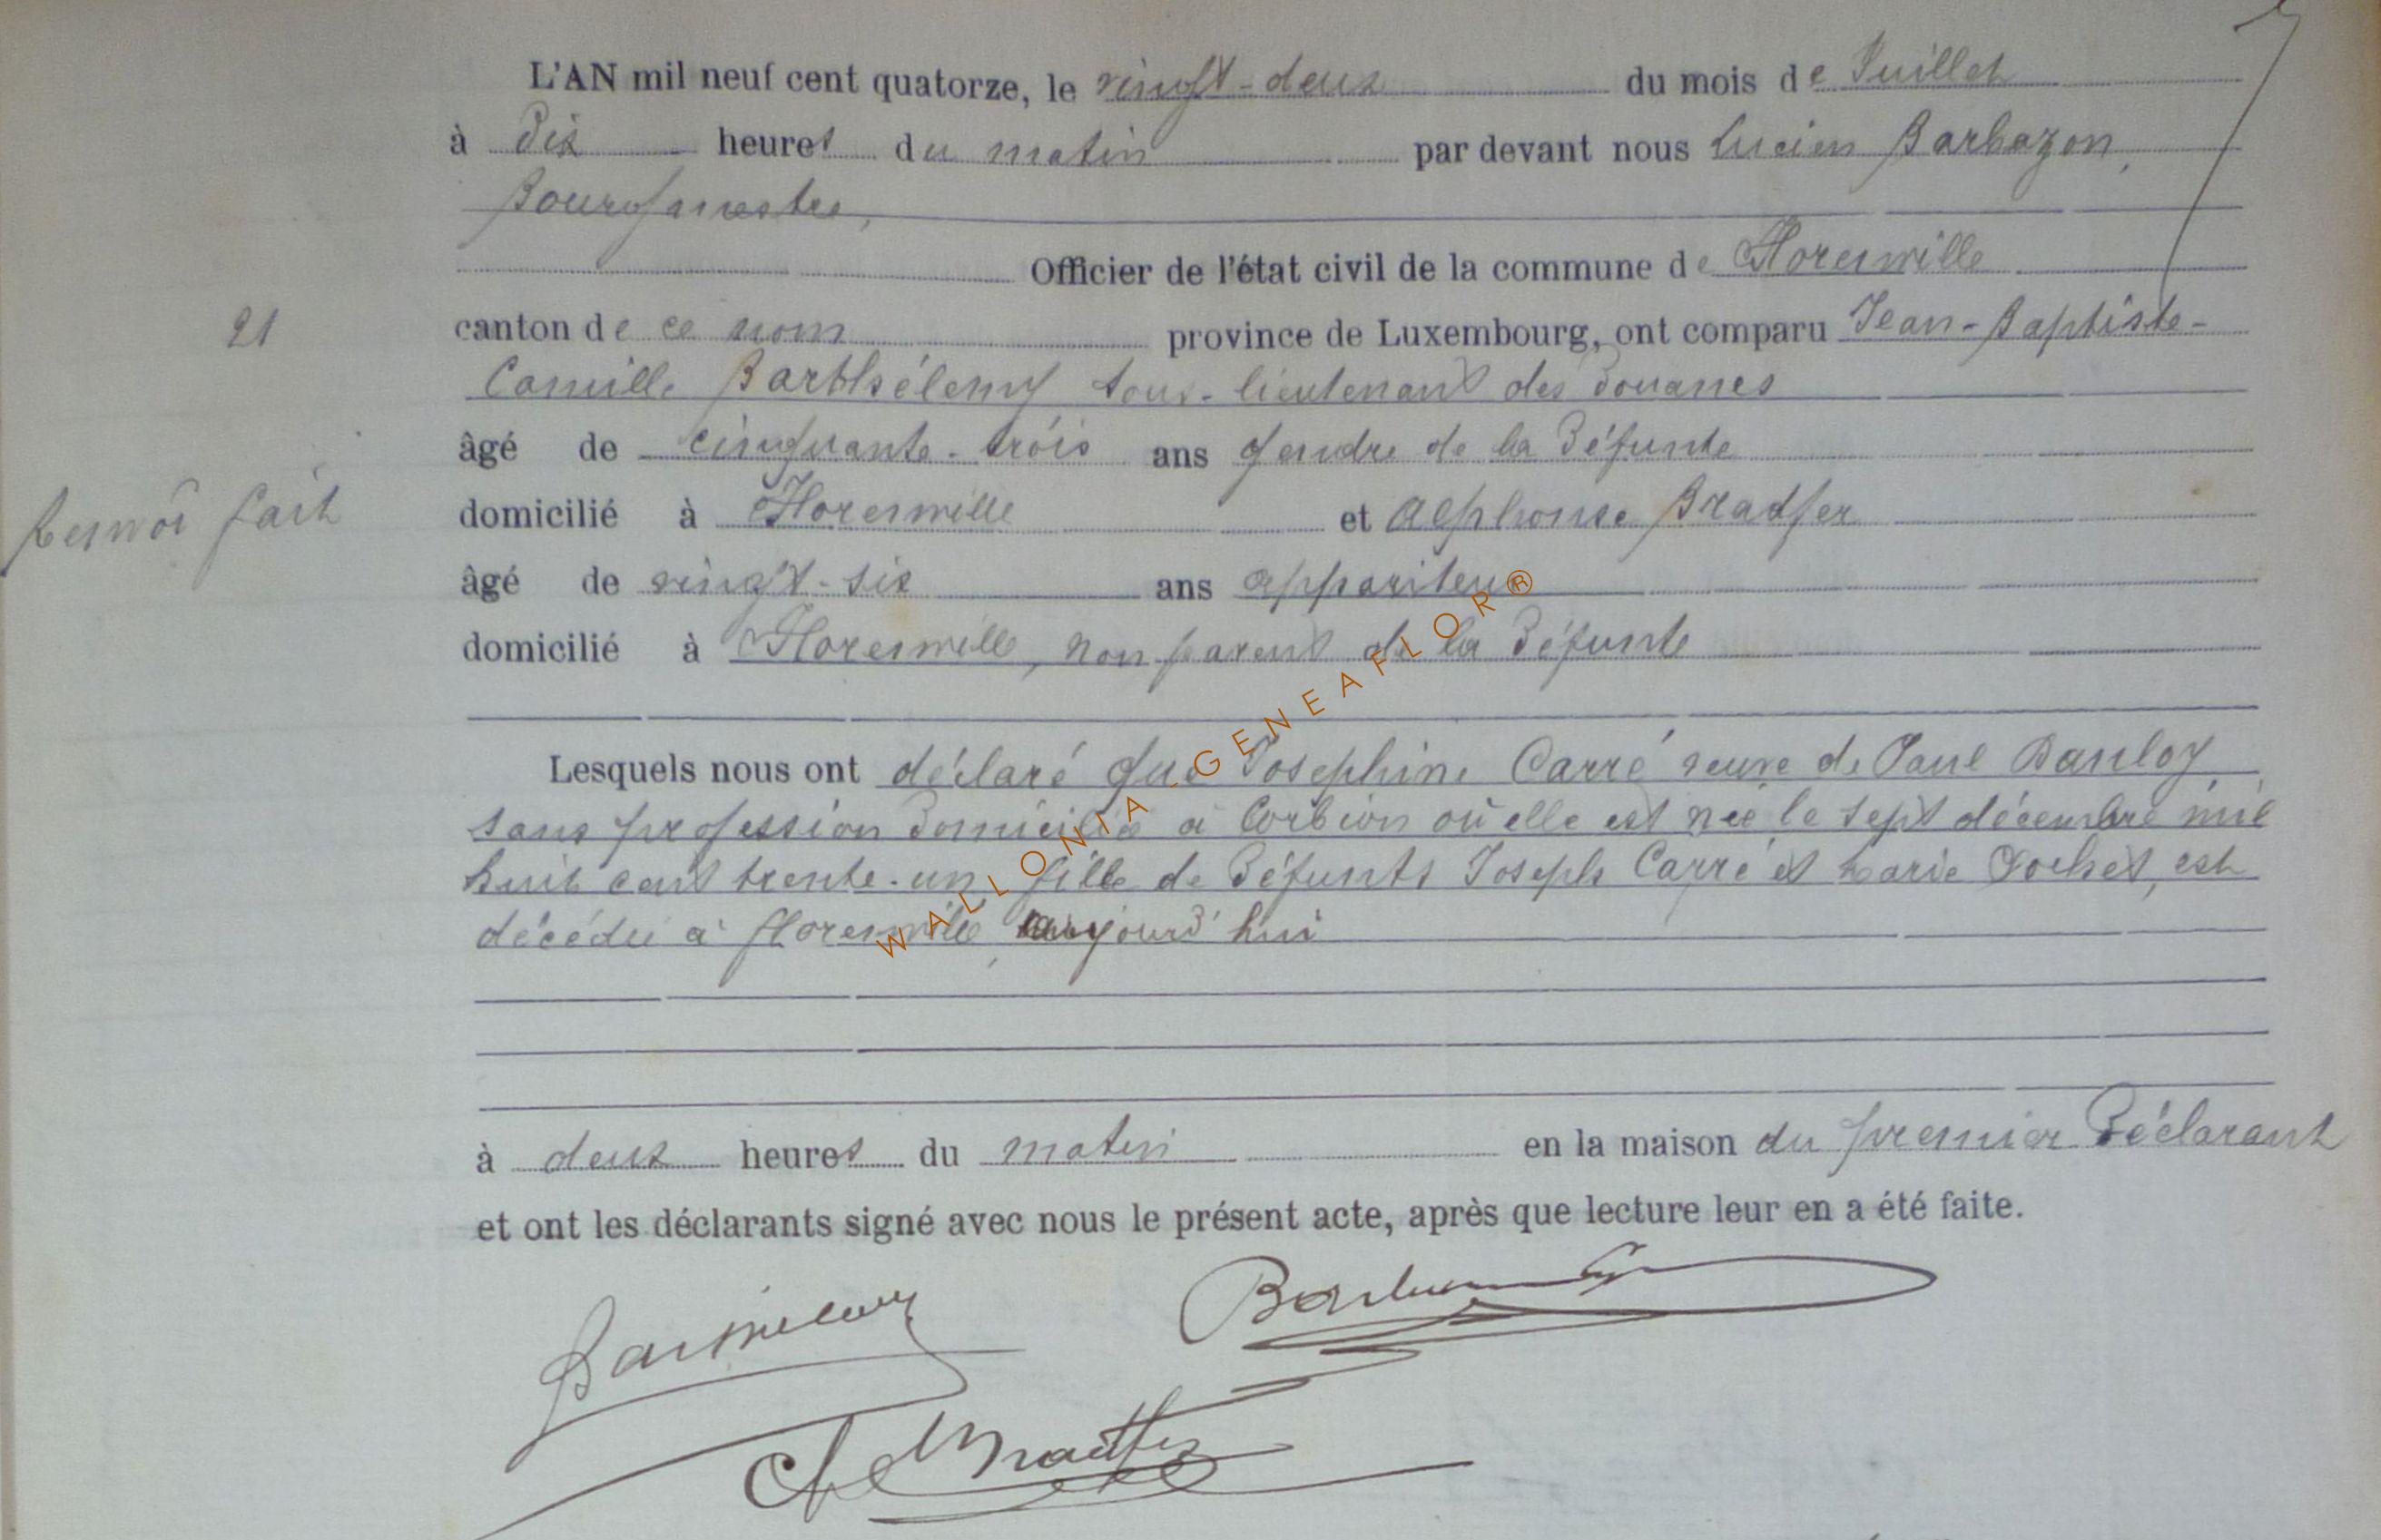 L'AN mil neuf cent quatorze, le vingt-deux du mois de Juillet
à Dix heures du matin par devant nous Lucien Barbazon,
Bourgmestre,
Officier de l'état civil de la commune de Florenville
21
canton de ce nom province de Luxembourg, ont comparu Jean-Baptiste-
Camille Barthélemy sous-lieutenant des Douanes
âgé de cinquante-trois ans gendre de la Défunte
Renvoi fait
domicilié à Florenville et Alphonse Bradfer
âgé de vingt-six ans appariteur
domicilié à Florenville, non parent de la Défunte
Lesquels nous ont déclaré que Josephine Carré veuve de Paul Bauloy
sans profession Domiciliée à Corbion où elle est née le sept décembre mil
huit cent trente-un, fille de Défunts Joseph Carré et Marie Pochet, est
décédée à Florenville, aujourd'hui
à deux heures du matin en la maison du premier Déclarant
et ont les déclarants signé avec nous le présent acte, après que lecture leur en a été faite.
WALLONIA - GENEAFLOR®